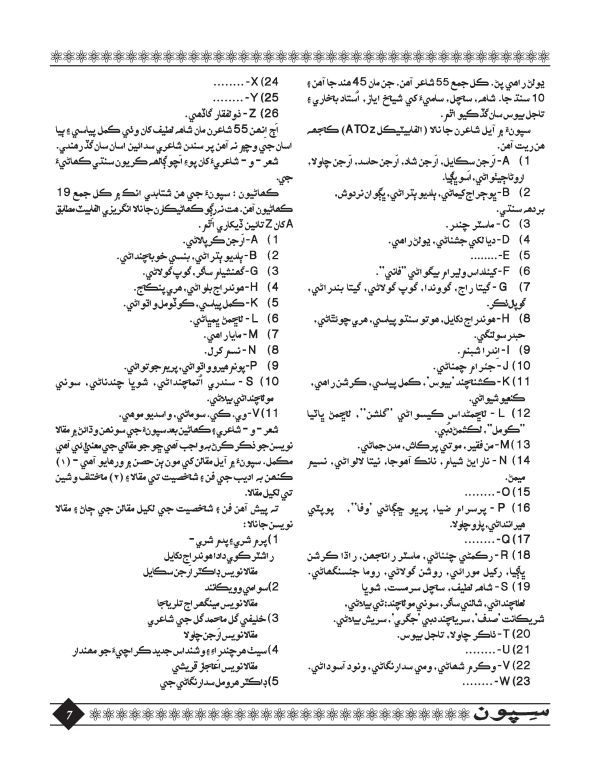 يولڻ راهي پڻ. ڪل جمع 55 شاعر آهن. جن مان 45 هند جا آهن ۽
10 سنڌ جا. شاهه، سچل، سامي ۽ کي شيخ اياز، استاد بخاري ۽
تاجل بيوس سان گڏ کيو اٿم.
سپون ۾ آيل شاعرن جا نالا (الفابيٽيڪل A TO z) ڪجهه
هن ريت آهن.
1) A- ارجن سڪايل، ارجن شاد، ارجن حاسد، ارجن چاولا،
2) B- ٻوڄراج ڪيماڻي، بلديو ٻٽراڻي، ڀڳوان نردوش،
بردهه سنڌي.
3) C- ماسٽر چندر.
4) D- ديا لکي جشناڻي، ڍولڻ راهي.
5) E- ........
6) F- کيئلداس وليرام بيگواڻي "فاني".
7) G- گيتا راج، گووندا، گوپ گولاڻي، گيتا بندراڻي،
گوپل ٺڪر.
8) H- هوندراج دکايل، هوتو سنڌو پياسي، هري چونٿاڻي،
حيدر سولنگي.
9) I- اندرا شبنم.
10) J- جئرام چمناڻي.
11) K- ڪشنچند 'بيوس'، ڪمل پياسي، ڪرشن راهي،
12) L- لڇمڻداس ڪيسواڻي "گلشن"، لڇمڻ ڀاٽيا
"ڪومل"، لکشمڻ دٻي.
13) M- من فقير، موتي پرڪاش، مدن جماڻي.
14) N- نارايڻ شيام، نانڪ آهوجا، نيتا لالواڻي، نسيم
ميمڻ.
15) O- ........
16) P- پرسرام ضيا، پرڀو ڇڳاڻي 'وفا'، پوپٽي
هيراننداڻي، پارو چاولا.
17) Q- ........
18) R- رڪمڻي چئناڻي، ماسٽر رانجهن، راڌا ڪرشن
ڀاڳيا، رکيل موراڻي، روشن گولاڻي، روما جئسنگهاڻي.
19) S- شاهه لطيف، سچل سرمست، شوڀا
لعلچنداڻي، شانتي ساگر، سوني مولچنداڻي ٻيلاڻي،
شريڪانت 'صدف'، سريچند دٻي 'جگري'، سريش ٻيلاڻي.
20) T- ٺاڪر چاولا، تاجل بيوس.
21) U- ........
22) V- وڪرم شهاڻي، ومي سدارنگاڻي، ونود آسوداڻي.
23) W- ........
24) X- ........
25) Y- ........
26) Z- ذولفقار گاڏهي.
اڄ انهن 55 شاعرن مان شاهه لطيف کان وٺي ڪمل پياسي ۽ ٻيا
اسان جي وچ ۾ نه آهن پر سندن شاعري سدائين اسان سان گڏ رهندي.
شعر - و - شاعريءَ کان پوءِ اچو ڳالهه ڪريون سنڌي ڪهاڻيءَ
جي.
ڪهاڻيون : سپونءَ جي هن شتابدي انڪ ۾ ڪل جمع 19
ڪهاڻيون آهن. هت نرڳو ڪهاڻيڪارن جا نالا انگريزي الفابيٽ مطابق
A کان Z تائين ڏيکاري اٿم.
1) A- ارجن ڪرپالاڻي.
2) B- بلديو ٻٽراڻي، بنسي خوبچنداڻي.
3) G- گهنشيام ساگر، گوپ گولاڻي.
4) H- هوندراج بلواڻي، هري پنڪج.
5) K- ڪمل پياسي، ڪوڏومل واٽواڻي.
6) L- لڇمڻ ڀمڀاڻي.
7) M- مايا راهي.
8) N- نسم کرل.
9) P- پونم هيرو واٽواڻي، پريم جوتواڻي.
10) S - سندري اتمچنداڻي، شوڀا چندناڻي، سوني
مولچنداڻي ٻيلاڻي.
11) V- وي.کي. سوماڻي، واسديو موهي.
شعر - و - شاعري ۽ ڪهاڻين بعد سپونءَ جي سونهن وڌائڻ ۾ مقالا
نويسن جو ذڪر ڪرڻ به واجب آهي ڇو جو مقالي جي معنيٰ ئي آهي
مڪمل. سپونءَ ۾ آيل مقالن کي مون ٻن حصن ۾ ورهايو آهي – (۱)
ڪنهن به اديب جي فن ۽ شخصيت تي مقالا ۽ (۲) مختلف وشين
تي لکيل مقالا.
ته پيش آهن فن ۽ شخصيت جي لکيل مقالن جي ڄاڻ ۽ مقالا
نويسن جا نالا:
1) پرم شري ۽ پدم شري –
راشٽر ڪوي دادا هوندراج دکايل
مقالا نويس ڊاڪٽر ارجن سڪايل
2) سوامي وويڪانند
مقالا نويس مينگهراج تلريجا
3) خليفي گل محمد گل جي شاعري
مقالا نويس ارجن چاولا
4) سيٺ هرچندراءِ وشنداس جديد ڪراچيءَ جو معمار
مقالا نويس اعجاز قريشي
5) ڊاڪٽر هرومل سدارنگاڻي جي
7
سـپـون